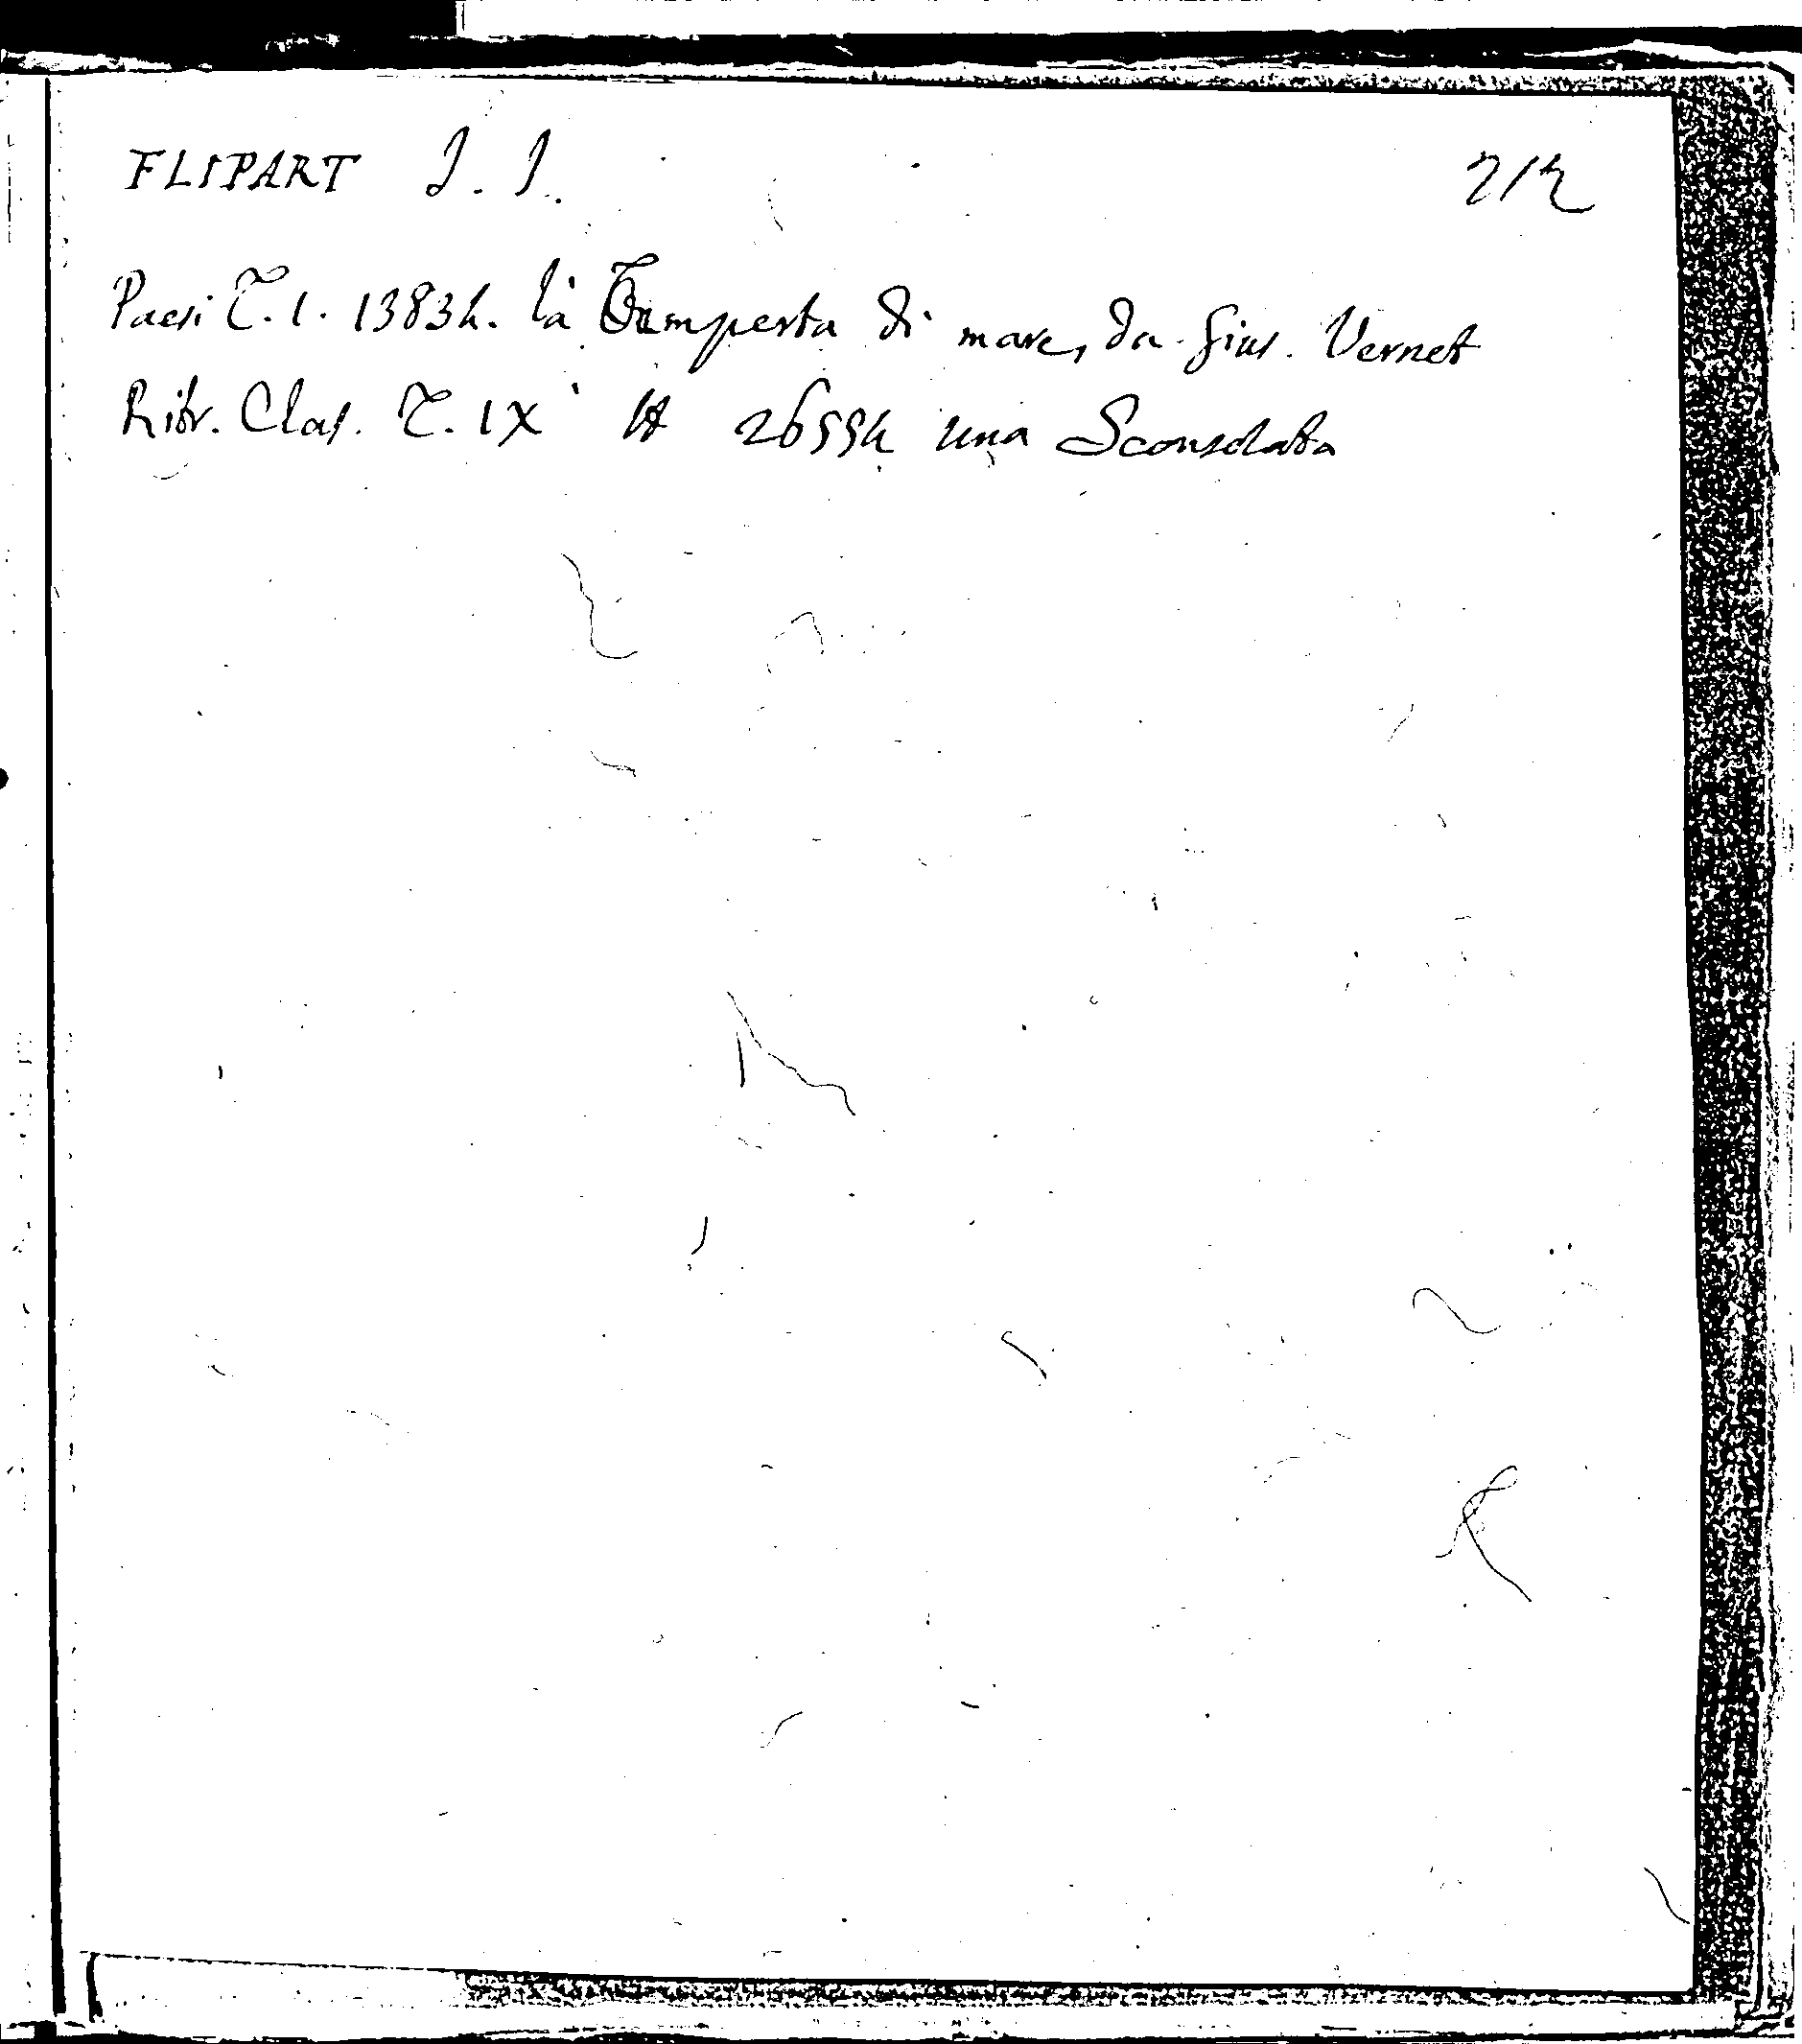 FLIPART J. J. 212
Paesi T. 1. 13834. la Tempesta di mare, da Gius. Vernet
Ritr. Clas. T. IX 26554 una Sconsolata